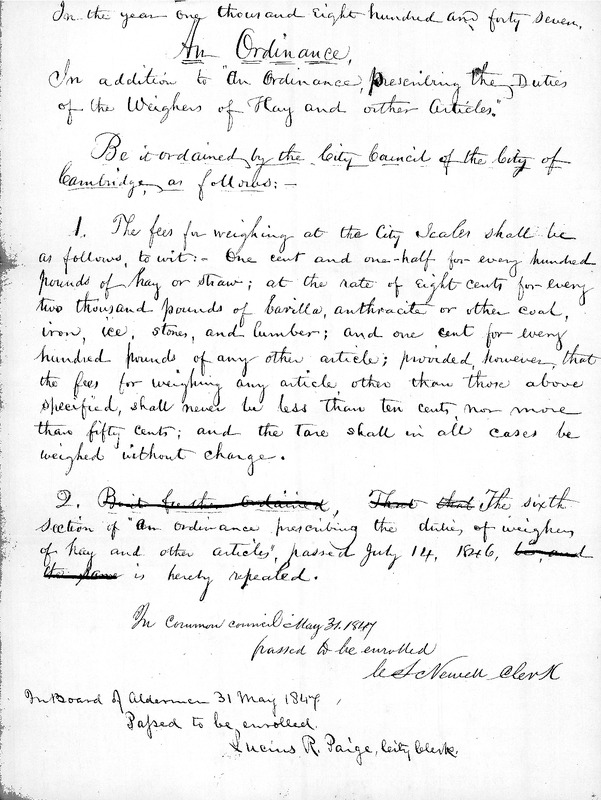 In the year one thousand Eight hundred and forty seven,
An Ordinance,
In addition to "An Ordinance, prescribing the Duties
of the Weighers of Hay and other Articles."
Be it ordained by the City Council of the City of
Cambridge, as follows:-
1. The fees for weighing at the City Scales shall be
as follows, to wit:- One cent and one-half for every hundred
pounds of hay or straw; at the rate of Eight cents for every
two thousand pounds of barilla, anthracite or other coal,
iron, ice, stones, and lumber; and one cent for every
hundred pounds of any other article; provided, however, that
the fees for weighing any article other than those above
specified, shall never be less than ten cents, nor more
than fifty cents; and the tare shall in all cases be
weighed without charge.
2. Be it further ordained, That that The sixth
Section of "An Ordinance prescribing the duties of weighers
of hay and other articles", passed July 14, 1846, be, and
the same is hereby repealed.
In Common Council May 31. 1847
passed to be enrolled
Newell Clerk
In Board of Aldermen 31 May 1847,
Passed to be enrolled.
Lucius R. Paige, City Clerk.